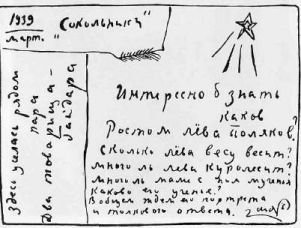 1939
март.
"Сокольники"
Здесь уселась рядом
пара
Два товарища -
Гайдара
Интересно б знать
каков
Ростом лёва Поляков?
Сколько лёва весу весит?
Много ль лева куролесит?
Много ль мама с ним мучения
Каково его ученье?
Вообщем ждем мы портрета
и толкового ответа.